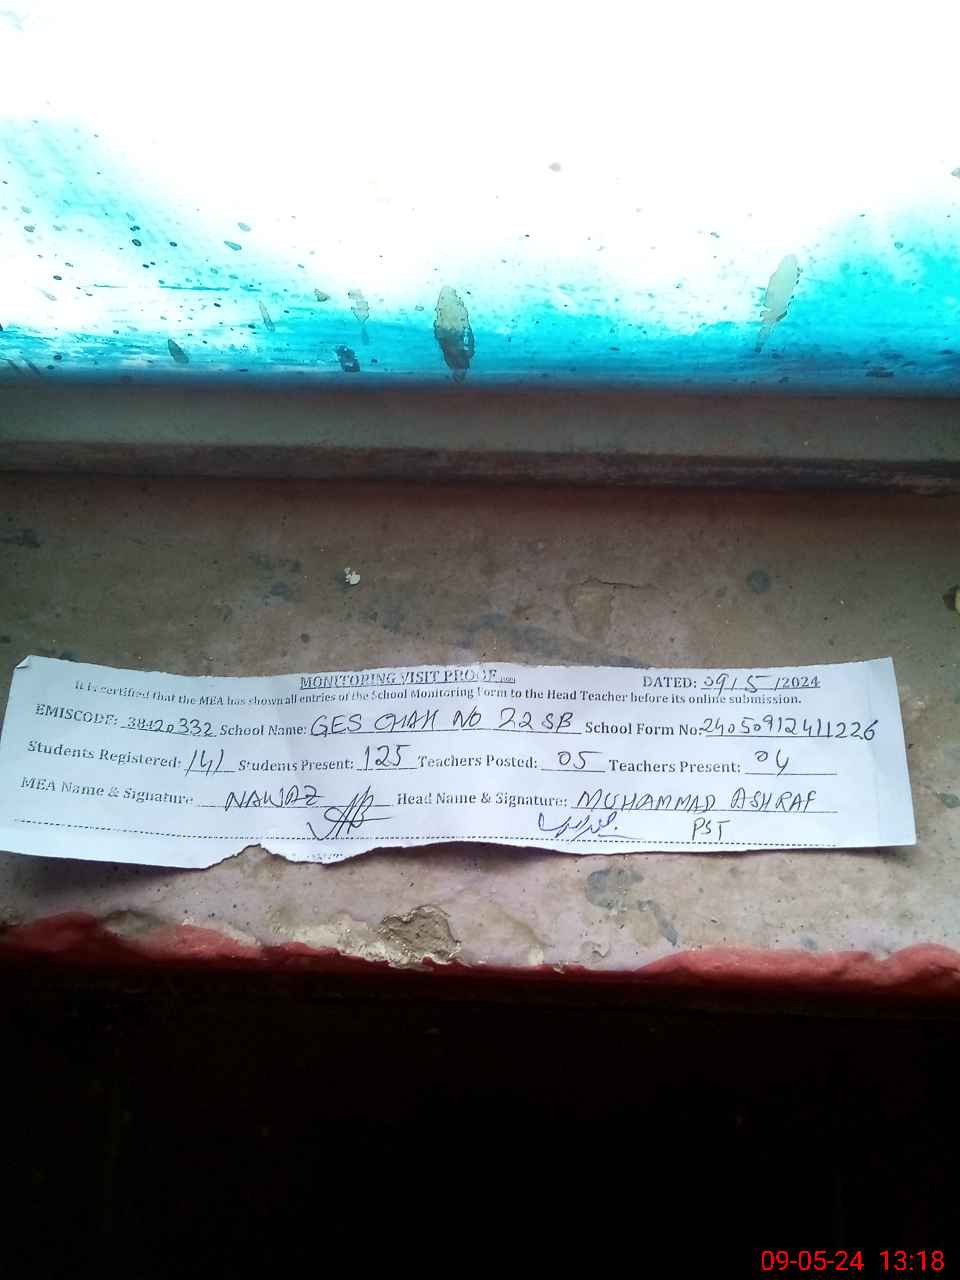 MONITORING VISIT PROOF DATED: 09/5/2024
It is certified that the MEA has shown all entries of the School Monitoring Form to the Head Teacher before its online submission.
EMISCODE: 38420332 School Name: GES CHAH NO 22 SB School Form No: 24050912411226
Students Registered: 141 Students Present: 125 Teachers Posted: 05 Teachers Present: 04
MEA Name & Signature NAWAZ Head Name & Signature: MUHAMMAD ASHRAF
PST
09-05-24 13:18